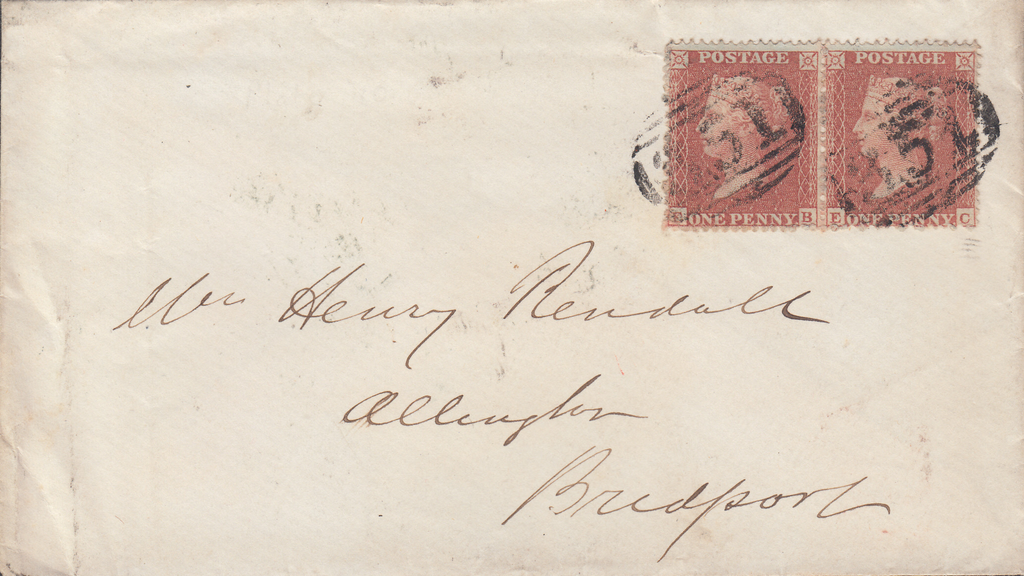 POSTAGE POSTAGE
ONE PENNY B E ONE PENNY C
Henry Rendall
Allington
Bridport